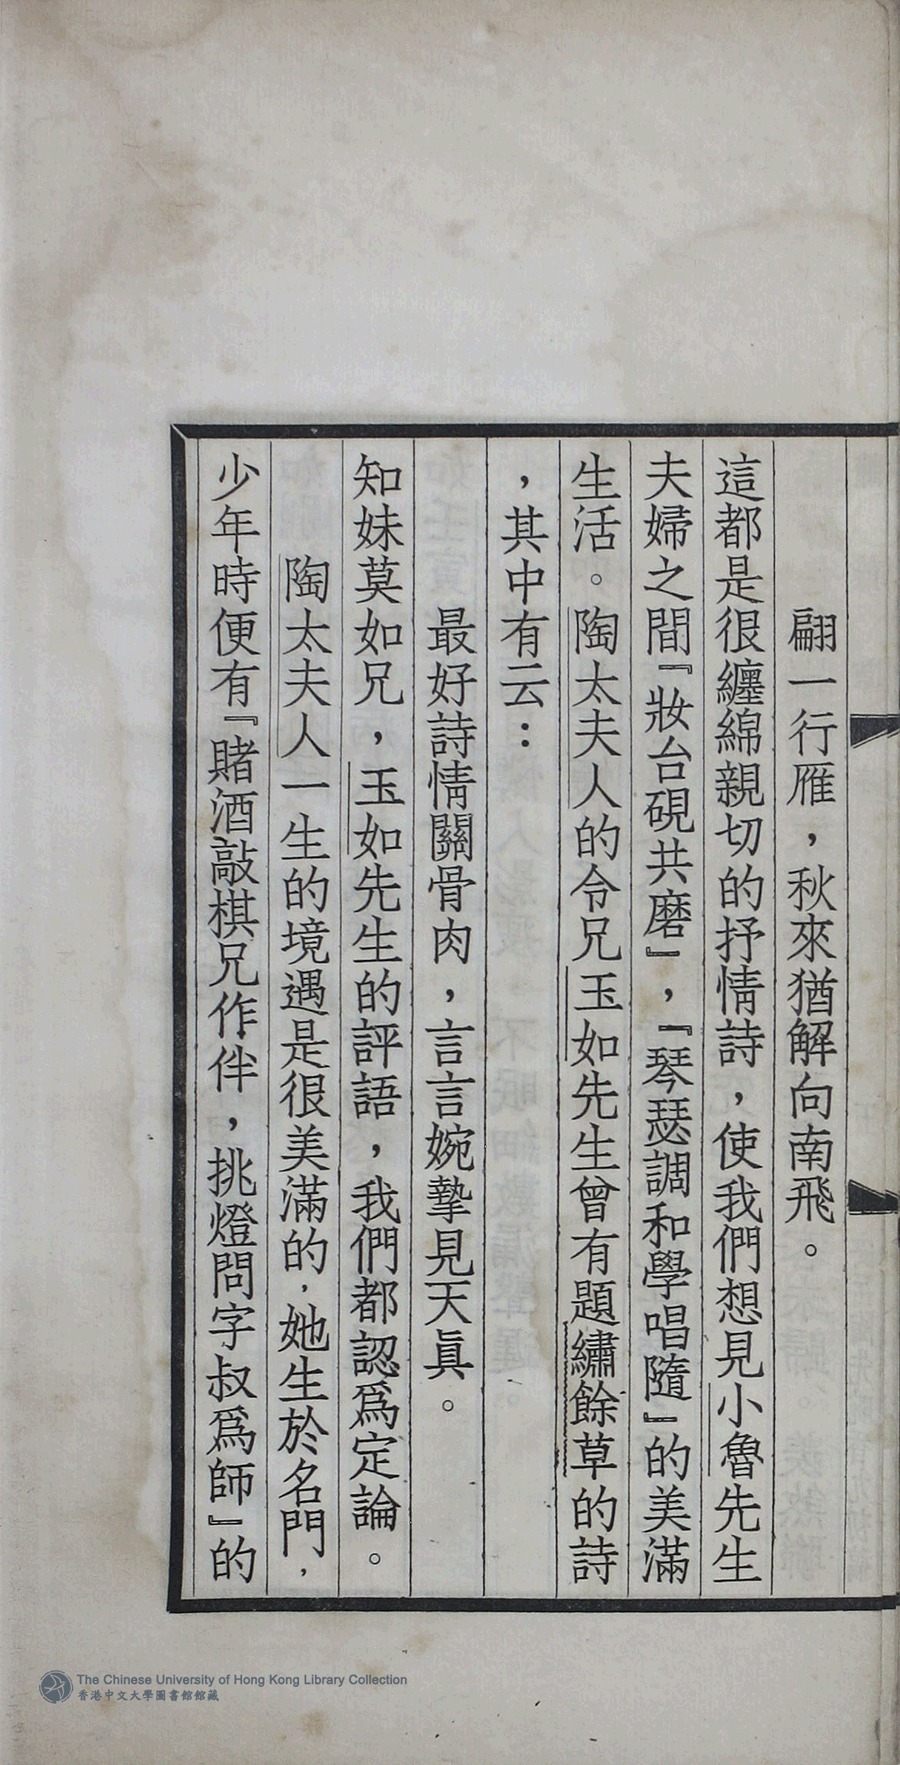 翩一行雁，秋來猶解向南飛。
這都是很纏綿親切的抒情詩，使我們想見小魯先生
夫婦之間『妝台硯共磨』，『琴瑟調和學唱隨』的美滿
生活。陶太夫人的令兄玉如先生曾有題繡餘草的詩
，其中有云：
最好詩情關骨肉，言言婉摯見天眞。
知妹莫如兄，玉如先生的評語，我們都認爲定論。
陶太夫人一生的境遇是很美滿的，她生於名門，
少年時便有『賭酒敲棋兄作伴，挑燈問字叔爲師』的
The Chinese University of Hong Kong Library Collection
香港中文大學圖書館館藏